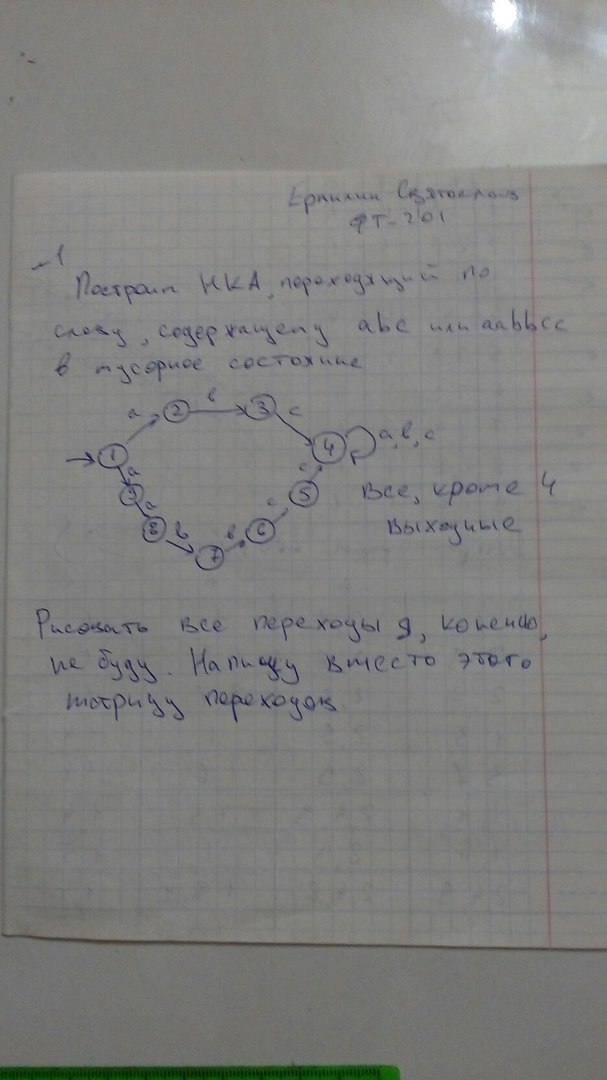 Ермилин Святослав
ФТ-201
№1
Построим НКА, переходящий по
слову, содержащему abc или aabbcc
в мусорное состояние
a b c
1 2 3 4 a, b, c
a a b b c c
9 8 7 6 5
Все, кроме 4
выходные
Рисовать все переходы я, конечно,
не буду. Напишу вместо этого
матрицу переходов